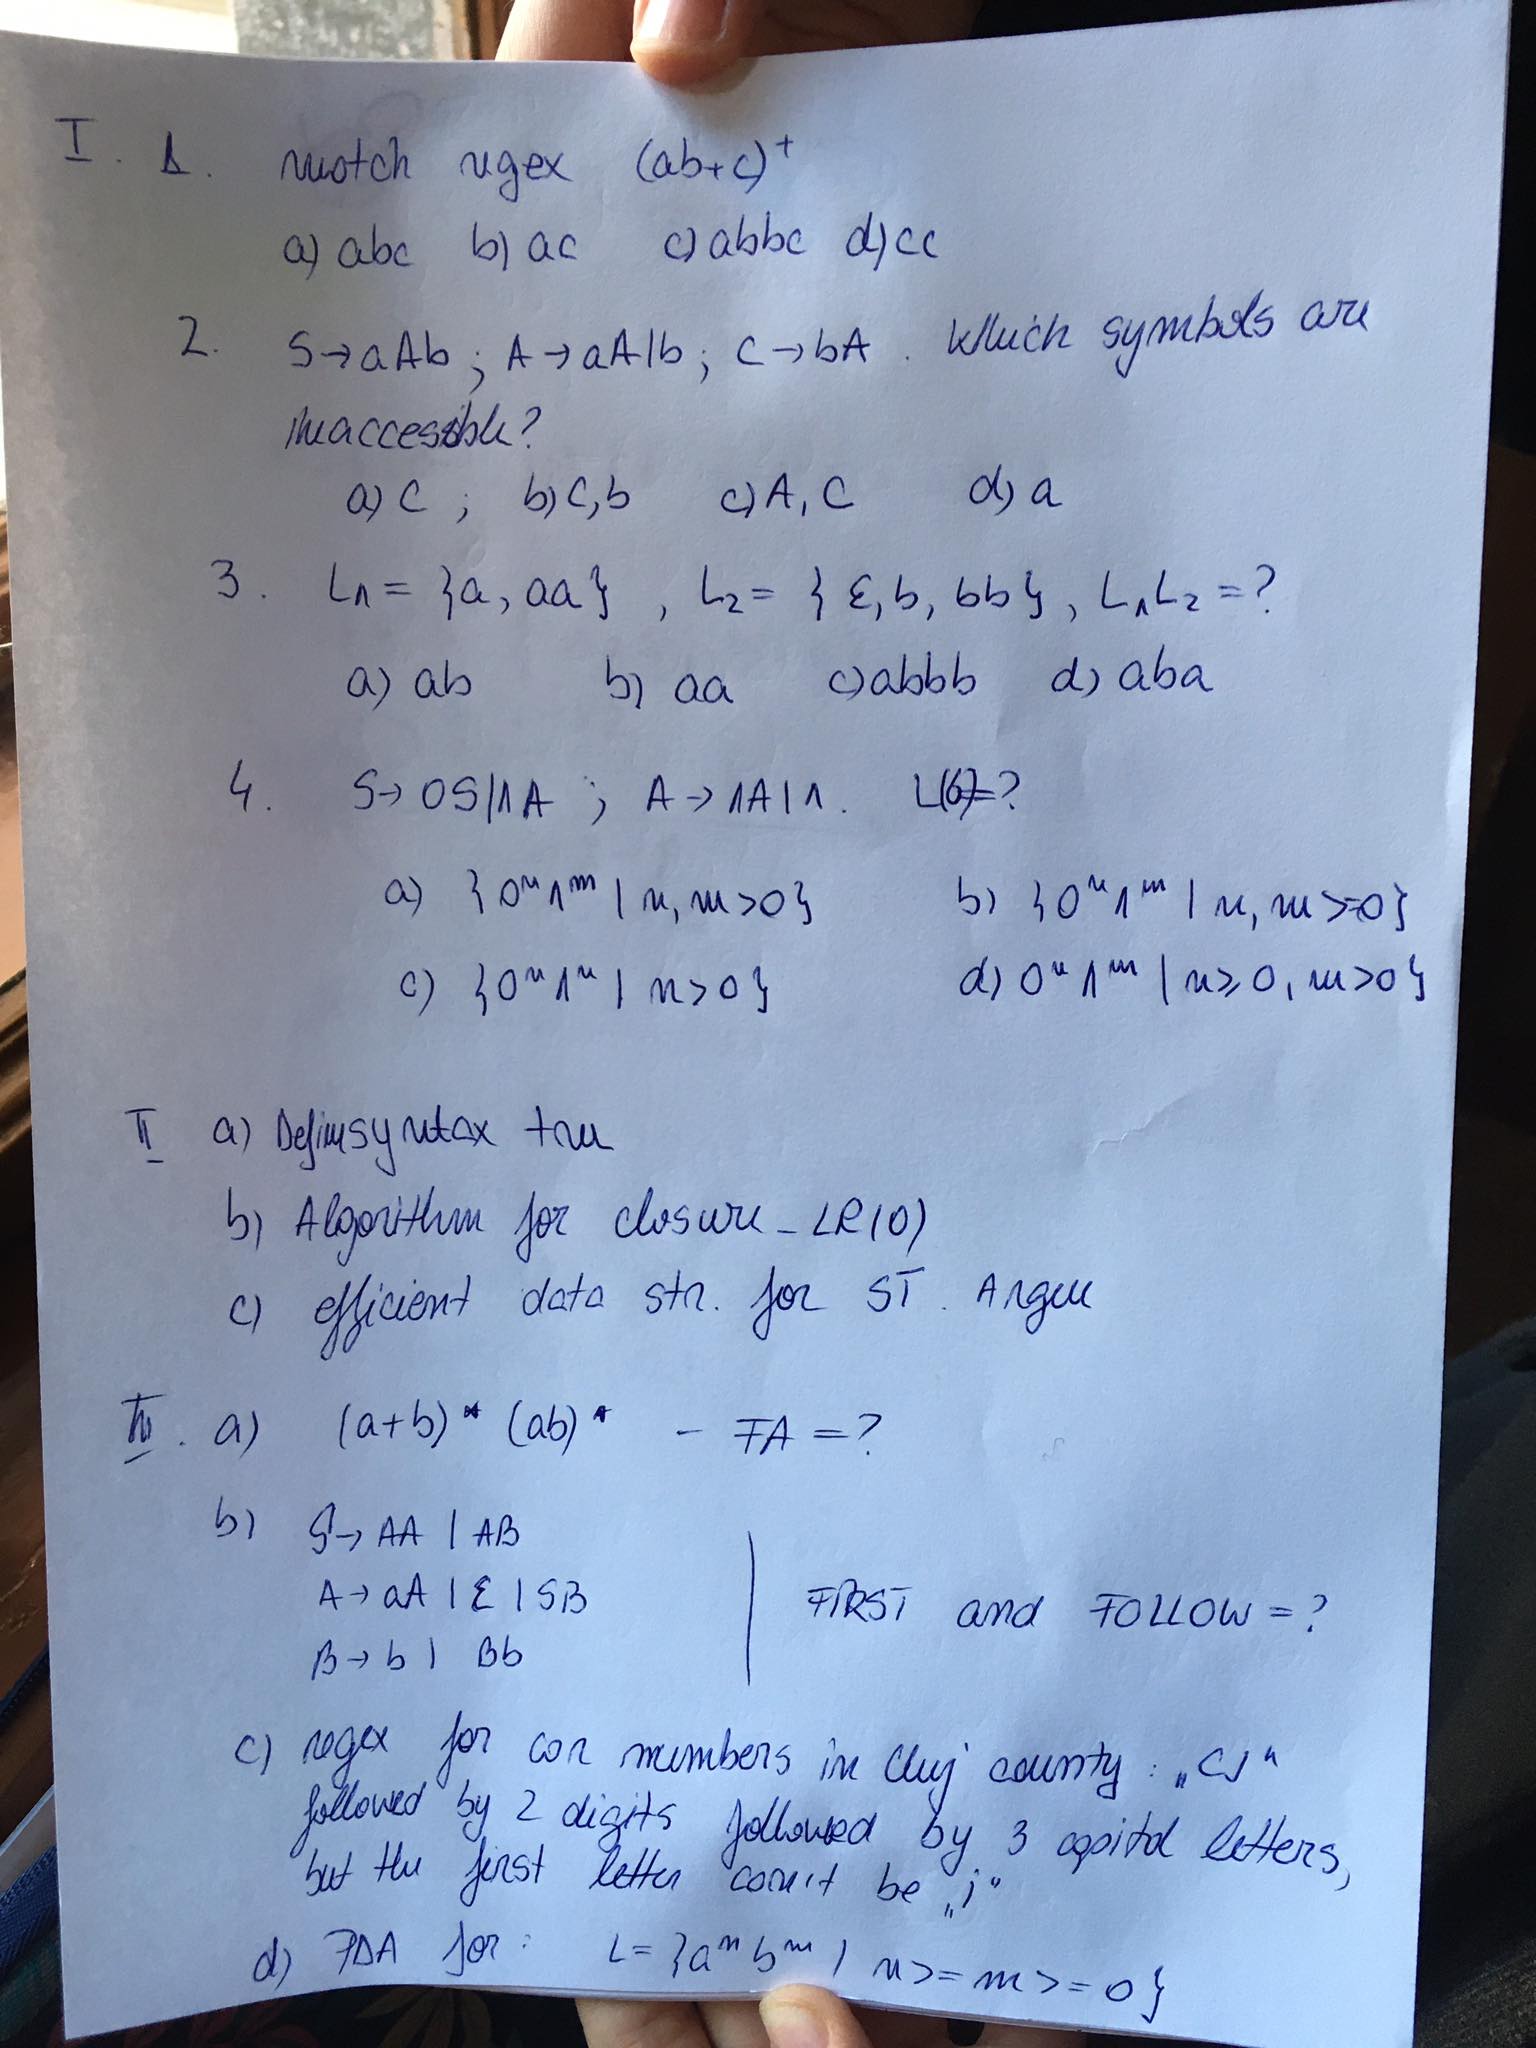 I. 1. match regex (ab+c)⁺
a) abc b) ac c) abbc d) cc
2. S→aAb ; A→aA|b ; C→bA . Which symbols are
inaccessible?
a) C ; b) C,b c) A, C d) a
3. L₁ = {a, aa} , L₂ = {ε, b, bb} , L₁L₂ = ?
a) ab b) aa c) abbb d) aba
4. S→ 0S|1A ; A→ 1A|1. L(G)=?
a) {0ⁿ1ᵐ | n, m >0} b) {0ⁿ1ᵐ | n, m >=0}
c) {0ⁿ1ⁿ | n>0} d) 0ⁿ1ᵐ | n≥0, m>0}
II a) Define syntax tree
b) Algorithm for closure - LR(0)
c) efficient data str. for ST. Argue
III. a) (a+b)* (ab)* - FA = ?
b) S→ AA | AB
A→ aA | ε | SB
B→ b | Bb
FIRST and FOLLOW = ?
c) regex for car numbers in Cluj county : „CJ"
followed by 2 digits followed by 3 capital letters,
but the first letter can't be „i"
d) PDA for : L= {aⁿ bᵐ | n >= m >= 0}